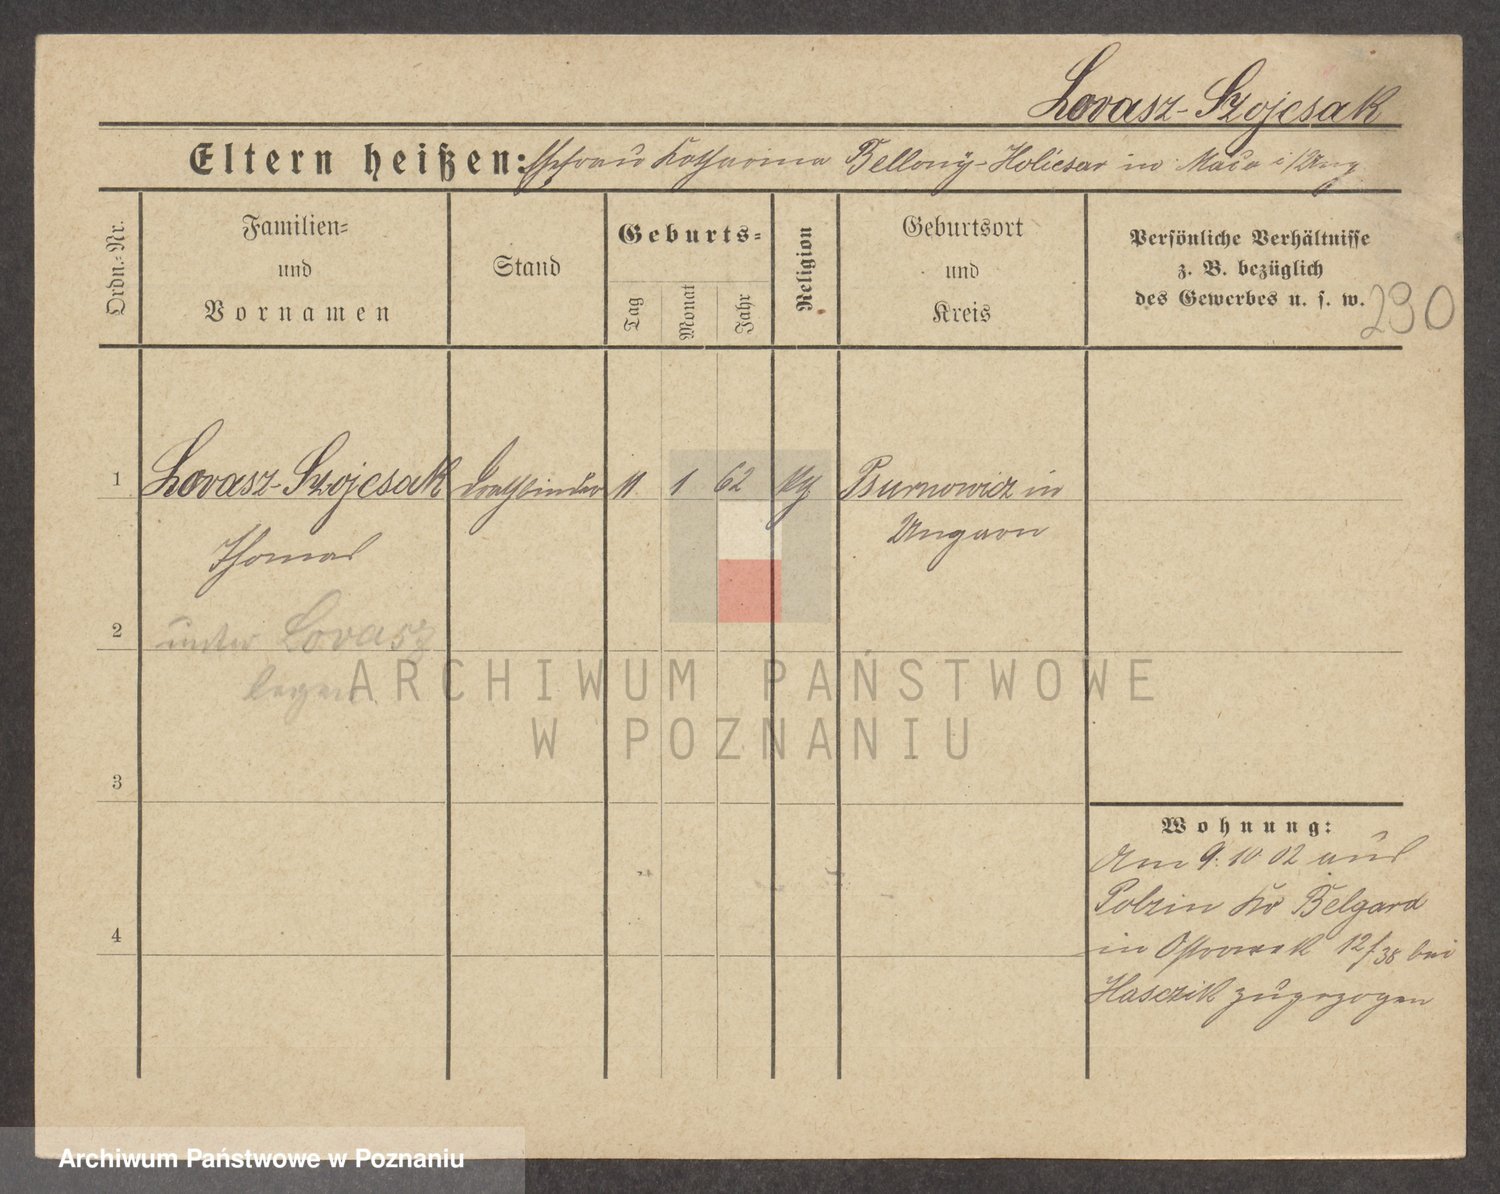 Lovasz-Szojcsak
Eltern heißen: Ehefrau Katharina Bellony-Holicsar in
Ordn.-Nr.
Familien- und Vornamen
Stand
Geburts-
Tag
Monat
Jahr
Religion
Geburtsort und Kreis
Persönliche Verhältnisse
z. B. bezüglich
des Gewerbes u. s. w.
290
1 Lovasz-Szojcsak Drahtbinder 11 1 62 Psurnowicz in
Thomas Ungarn
2 unter Lovasz
legen
ARCHIWUM PAŃSTWOWE
W POZNANIU
3
Wohnung:
Am 9. 10 02 aus
Polzin Kr Belgard
4
in Ostrowek 12/38 bei
Hasczik zugezogen
Archiwum Państwowe w Poznaniu